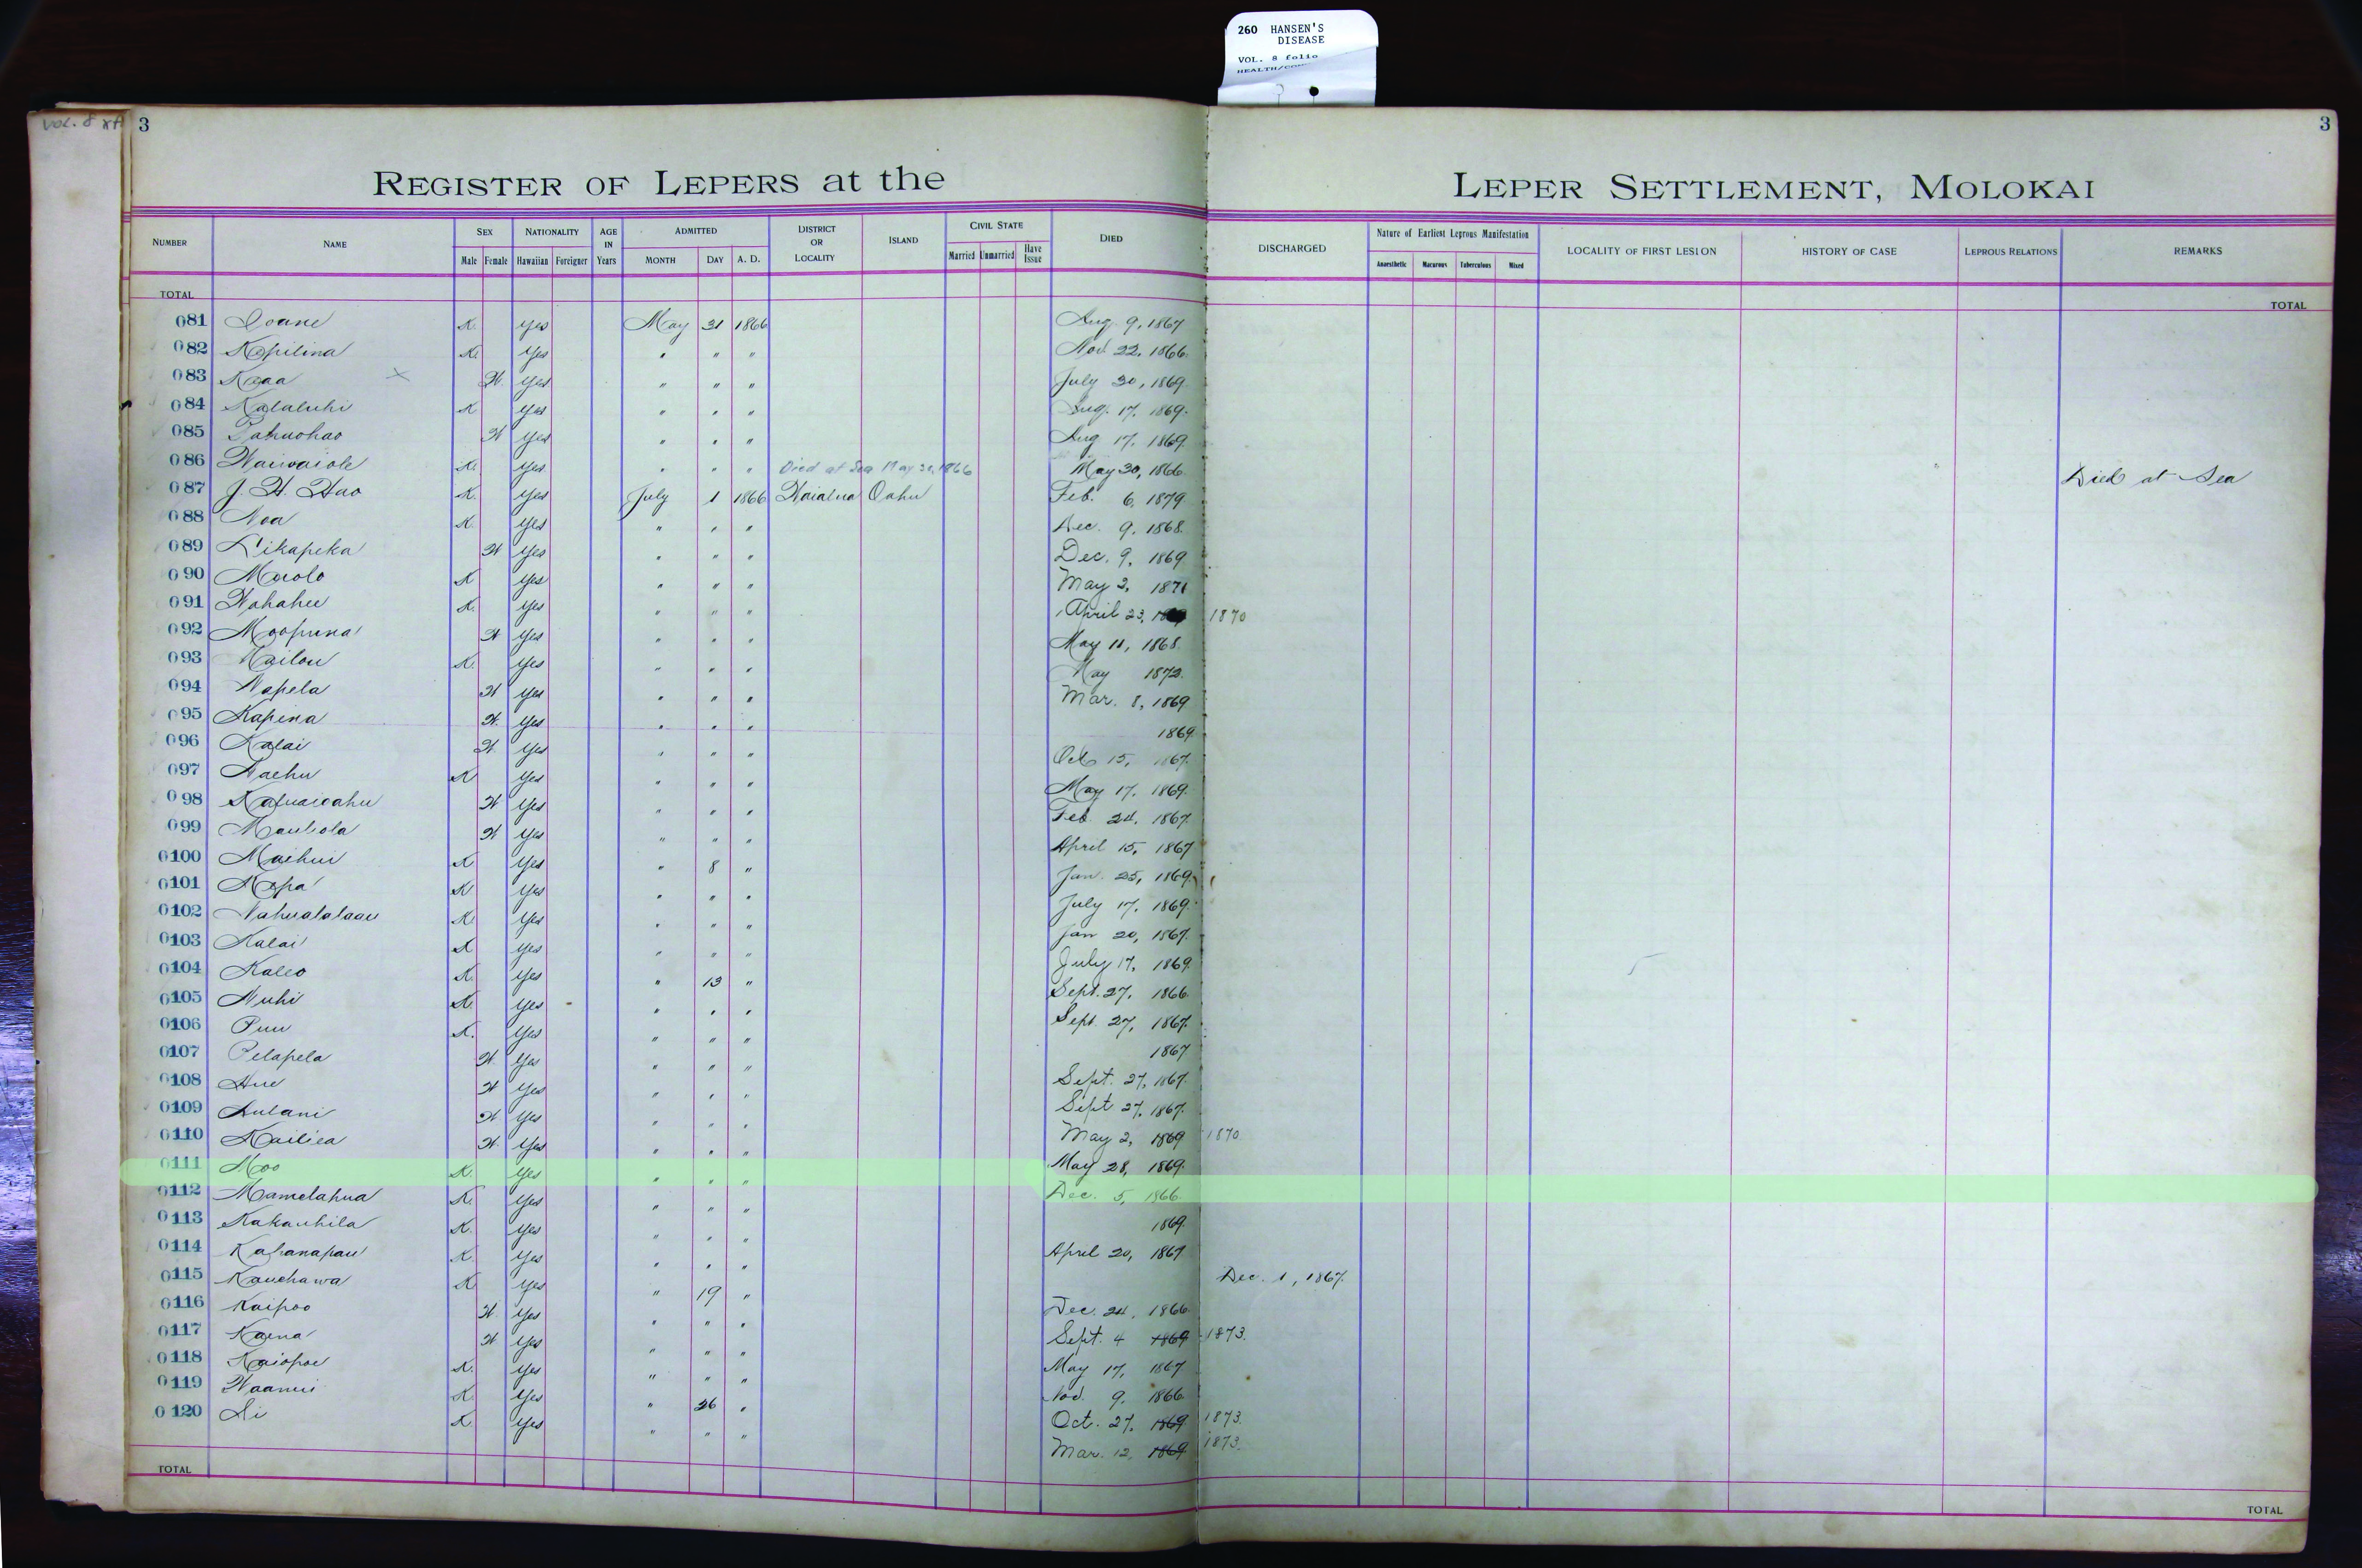 260 HANSEN'S
DISEASE
VOL. 8 folio
VOL. 8
3
3
REGISTER OF LEPERS at the LEPER SETTLEMENT, MOLOKAI
NUMBER NAME SEX NATIONALITY AGE IN Years ADMITTED DISTRICT OR LOCALITY ISLAND CIVIL STATE DIED DISCHARGED Nature of Earliest Leprous Manifestation LOCALITY OF FIRST LESION HISTORY OF CASE LEPROUS RELATIONS REMARKS
Male Female Hawaiian Foreigner MONTH DAY A. D. Married Unmarried Have Issue Anaesthetic Macurous Tuberculous Mixed
TOTAL TOTAL
081 Ioane K. yes May 31 1866 Aug. 9, 1867
082 Kapilina K. yes " " " Nov. 22, 1866.
083 Kaaa x W. yes " " " July 30, 1869.
084 Kalaluhi K yes " " " Aug. 17, 1869.
085 Pahuohao W yes " " " Aug 17, 1869.
086 Waiwaiole K. yes " " " Died at Sea May 30, 1866 May 30, 1866. Died at Sea
087 J. H. Hao K. yes July 1 1866 Waialua Oahu Feb. 6, 1879
088 Noa K. yes " " " Dec. 9, 1868.
089 Likapeka W yes " " " Dec. 9, 1869
090 Maolo K yes " " " May 2, 1871
091 Wahahee K. yes " " " April 23, 1870
092 Moopuna W yes " " " May 11, 1868.
093 Kailou K. yes " " " May 1872.
094 Napela W yes " " " Mar. 8, 1869
095 Kapina W. yes " " " 1869.
096 Kalai W. yes " " " Oct 15, 1867.
097 Naehu K yes " " " May 17, 1869.
098 Kapuaioahu W yes " " " Feb. 24, 1867.
099 Mauliola W yes " " " April 15, 1867
0100 Maihui K yes " 8 " Jan. 25, 1869.
0101 Napa K yes " " " July 17, 1869.
0102 Nahualalaau K. yes " " " Jan 20, 1867.
0103 Kalai K yes " " " July 17, 1869.
0104 Kaleo K. yes " 13 " Sept. 27, 1866.
0105 Nuhi K. yes " " " Sept. 27, 1867.
0106 Puu K. yes " " " 1867
0107 Pelapela W. yes " " " Sept. 27, 1867.
0108 Aue W yes " " " Sept 27, 1867.
0109 Aulani W. yes " " " May 2, 1869 1870.
0110 Kailiea W. yes " " " May 28, 1869.
0111 Moo K. yes " " " Dec. 5, 1866.
0112 Mamelahua K. yes " " " 1869.
0113 Kakauhila K. yes " " " April 20, 1867
0114 Kahanapau K. yes " " " Dec. 1, 1867.
0115 Kauehawa K. yes " 19 " Dec. 24, 1866.
0116 Kaipoo W. yes " " " Sept. 4 1869 1873.
0117 Kaena W yes " " " May 17, 1867
0118 Kaiopoe K. yes " " " Nov. 9, 1866.
0119 Waanui K. yes " 26 " Oct. 27, 1869 1873.
0120 Li K. yes " " " Mar. 12, 1869 1873.
TOTAL TOTAL